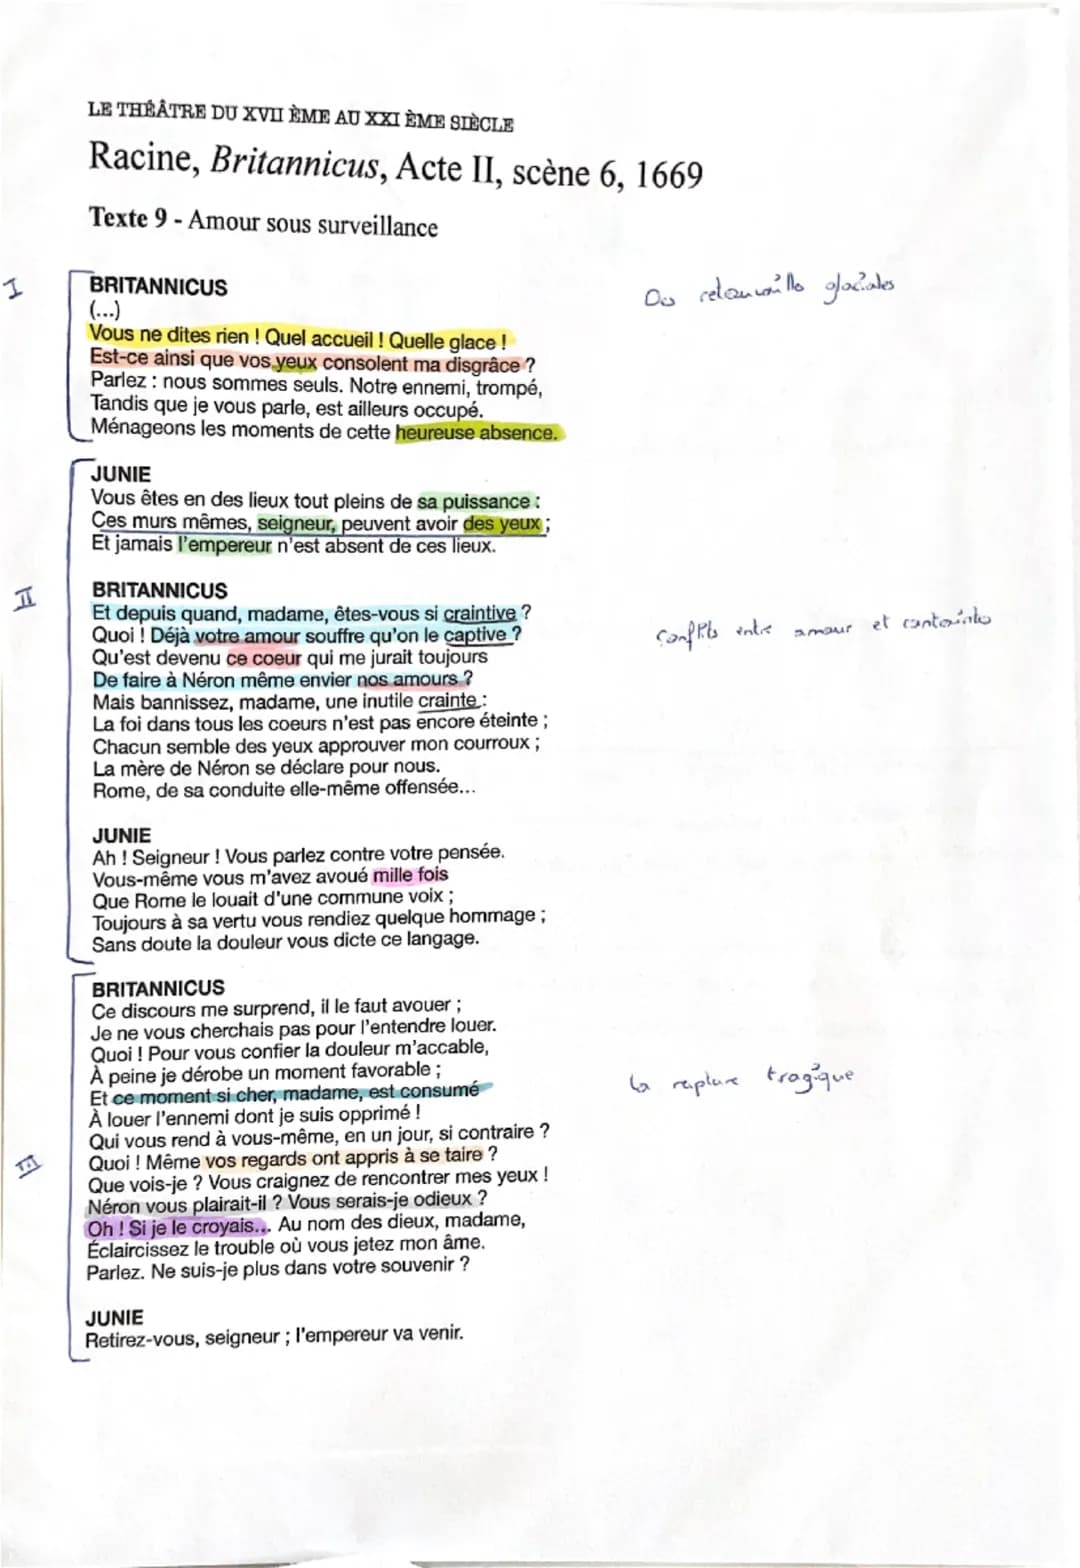 LE THÉÂTRE DU XVII ÈME AU XXI ÈME SIÈCLE
Racine, Britannicus, Acte II, scène 6, 1669
Texte 9 - Amour sous surveillance
I
BRITANNICUS
Des retrouvailles glaciales
(...)
Vous ne dites rien ! Quel accueil ! Quelle glace !
Est-ce ainsi que vos yeux consolent ma disgrâce ?
Parlez : nous sommes seuls. Notre ennemi, trompé,
Tandis que je vous parle, est ailleurs occupé.
Ménageons les moments de cette heureuse absence.
JUNIE
Vous êtes en des lieux tout pleins de sa puissance :
Ces murs mêmes, seigneur, peuvent avoir des yeux ;
Et jamais l'empereur n'est absent de ces lieux.
II
BRITANNICUS
Et depuis quand, madame, êtes-vous si craintive ?
Quoi ! Déjà votre amour souffre qu'on le captive ?
Conflits entre amour et contrainte
Qu'est devenu ce coeur qui me jurait toujours
De faire à Néron même envier nos amours ?
Mais bannissez, madame, une inutile crainte :
La foi dans tous les coeurs n'est pas encore éteinte ;
Chacun semble des yeux approuver mon courroux ;
La mère de Néron se déclare pour nous.
Rome, de sa conduite elle-même offensée...
JUNIE
Ah ! Seigneur ! Vous parlez contre votre pensée.
Vous-même vous m'avez avoué mille fois
Que Rome le louait d'une commune voix ;
Toujours à sa vertu vous rendiez quelque hommage ;
Sans doute la douleur vous dicte ce langage.
BRITANNICUS
Ce discours me surprend, il le faut avouer ;
Je ne vous cherchais pas pour l'entendre louer.
Quoi ! Pour vous confier la douleur m'accable,
À peine je dérobe un moment favorable ;
La rupture tragique
Et ce moment si cher, madame, est consumé
À louer l'ennemi dont je suis opprimé !
Qui vous rend à vous-même, en un jour, si contraire ?
III
Quoi ! Même vos regards ont appris à se taire ?
Que vois-je ? Vous craignez de rencontrer mes yeux !
Néron vous plairait-il ? Vous serais-je odieux ?
Oh ! Si je le croyais... Au nom des dieux, madame,
Éclaircissez le trouble où vous jetez mon âme.
Parlez. Ne suis-je plus dans votre souvenir ?
JUNIE
Retirez-vous, seigneur ; l'empereur va venir.